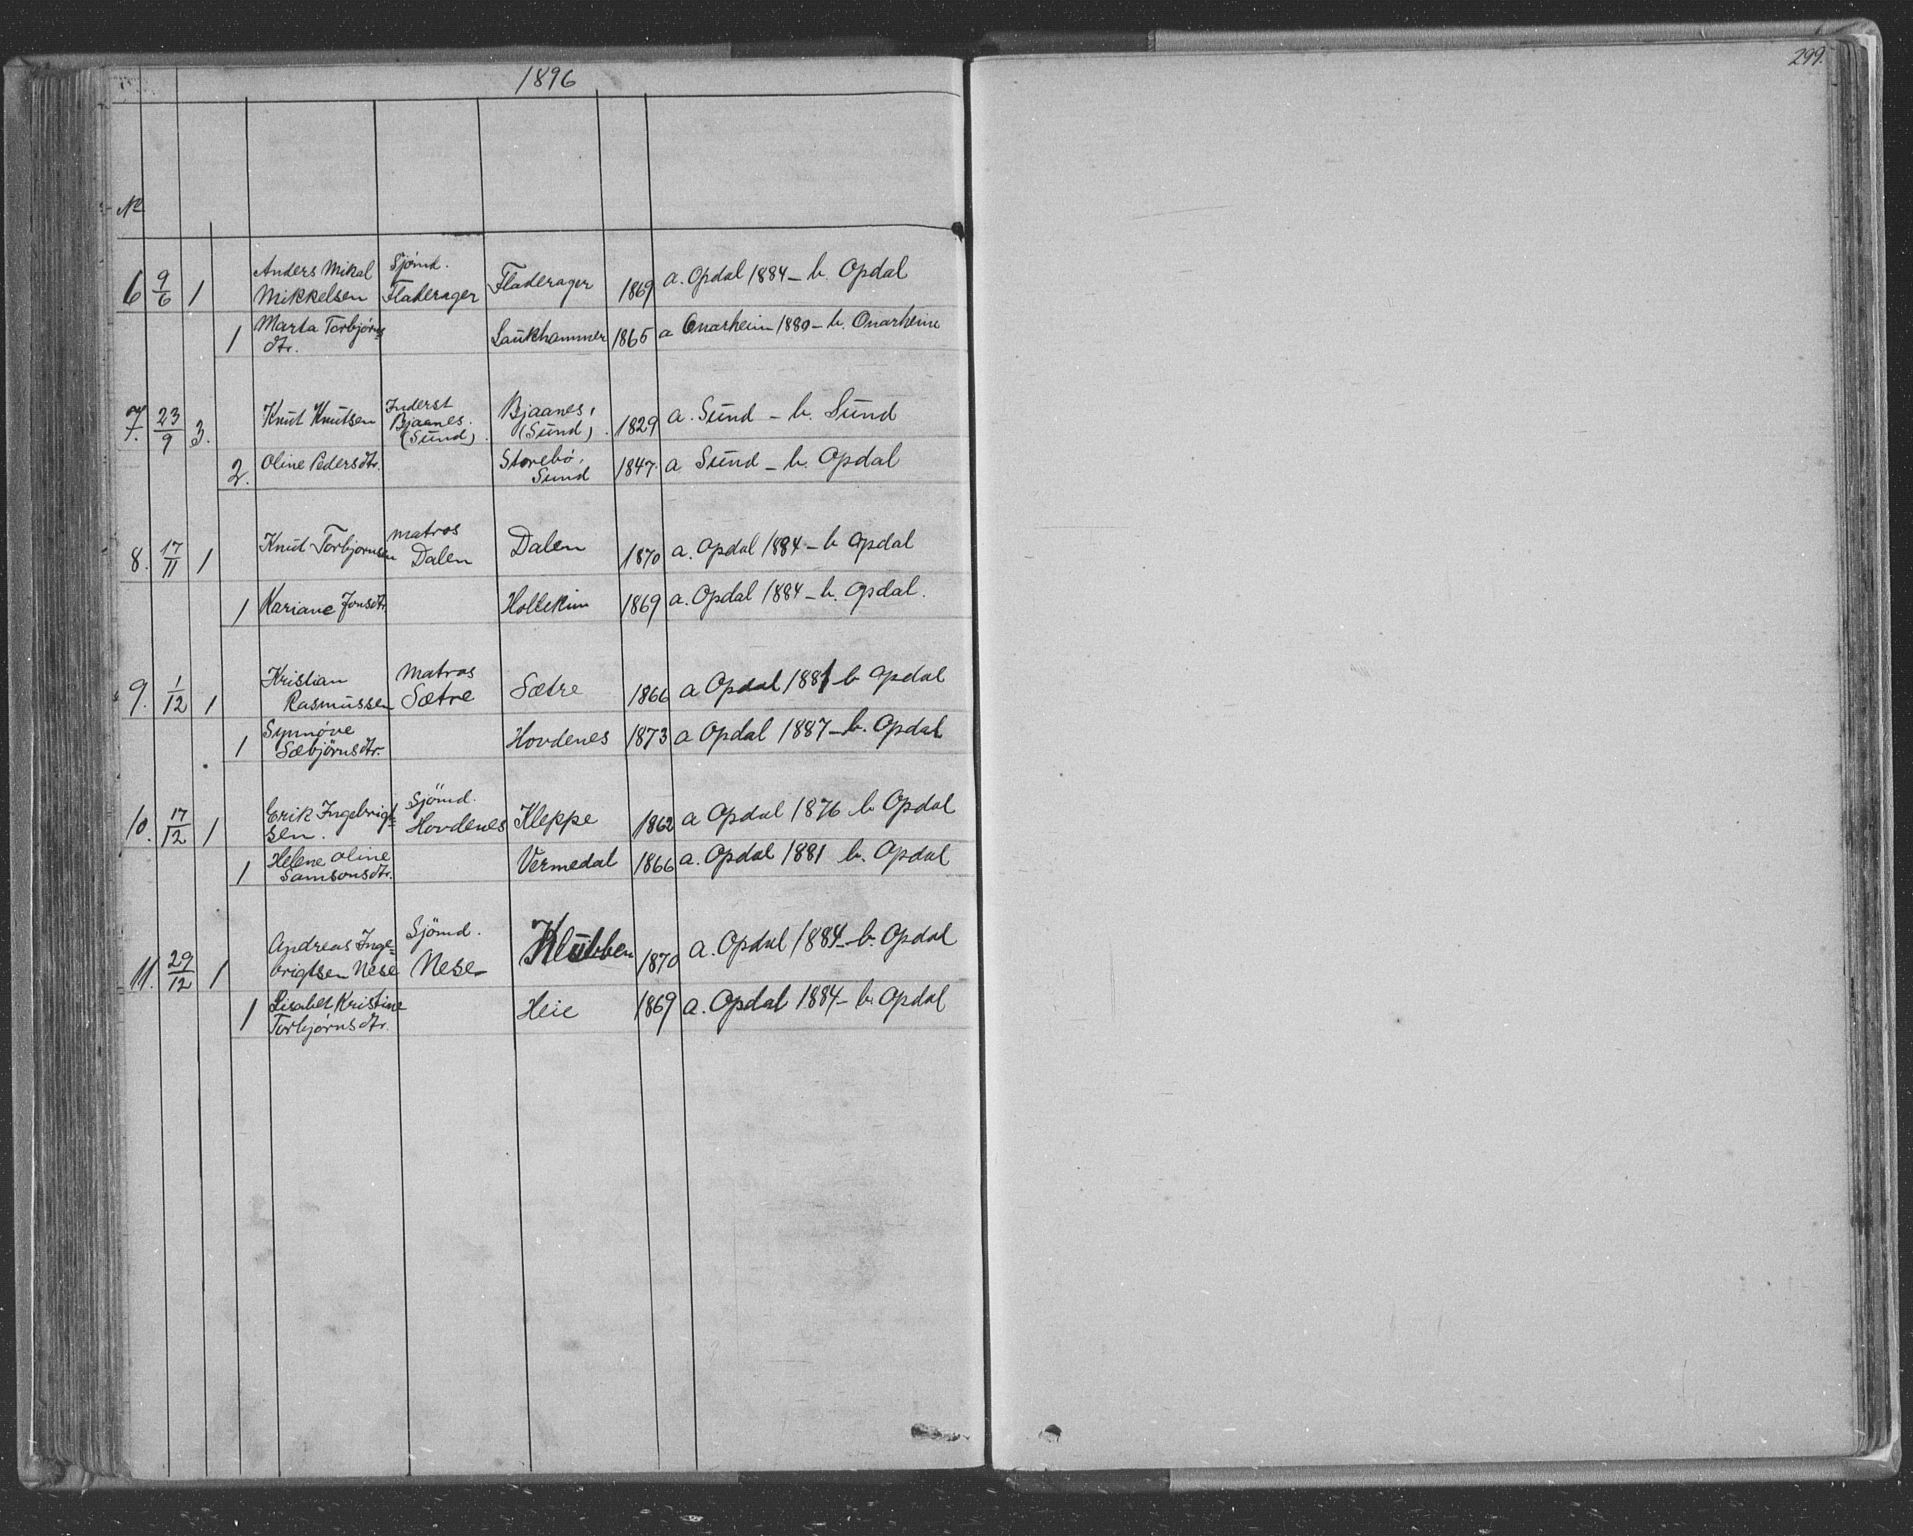 1896
299.
№
6 9/6 1 Anders Mikal Mikkelsen Sjömd. Fladerager Fladerager 1869 a. Opdal 1884 - b. Opdal
1 Marta Torbjörns= dtr. Laukhammer 1865 a Onarheim 1880 - b. Onarheim
7. 23/9 3. Knut Knutsen Inderst Bjaanes. (Sund). Bjaanes, (Sund). 1829 a. Sund - b. Sund
2. Oline Pedersdtr. Storebö, Sund 1847. a Sund - b. Opdal
8. 17/11 1 Knut Torbjørnsen matros Dalen Dalen 1870 a. Opdal 1884 - b Opdal
1 Kariane Jonsdtr. 1869 a. Opdal 1884 - b. Opdal.
9. 1/12 1 Kristian Rasmussen Matros Sætre Sætre 1866 a Opdal 1881 b Opdal
1 Synnøve Sæbjörnsdtr. Hovdenes 1873 a Opdal 1887 - b. Opdal
10. 17/12 1 Erik Ingebrigt= sen. Sjömd. Hovdenes Kleppe 1862 a Opdal 1876 b Opdal
1 Helene Oline Samsonsdtr. Vermedal 1866 a. Opdal 1881 b. Opdal
11. 29/12 1 Andreas Inge= brigtsen Nese Sjömd. Nese Klubben 1870 a. Opdal 1884 - b. Opdal
1 Lisabet Kristine Torbjørnsdtr. Heie 1869 a. Opdal 1884 - b. Opdal